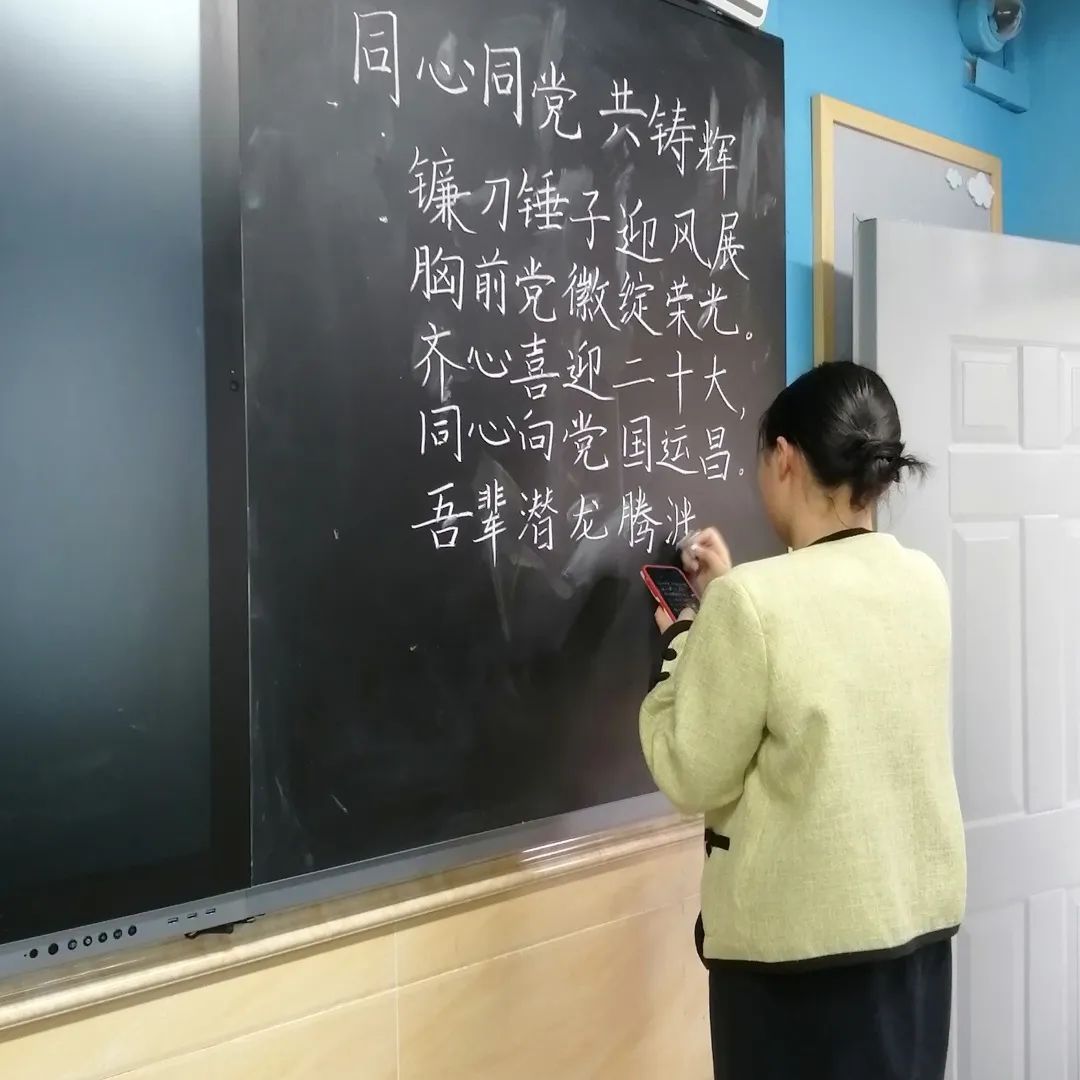 同心同党 共铸辉
镰刀锤子迎风展
胸前党徽绽荣光。
齐心喜迎二十大,
同心向党国运昌。
吾辈潜龙腾